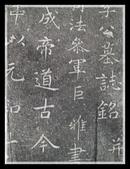 公墓誌銘并
法參軍巨雅書
成帝道古今
中以元和